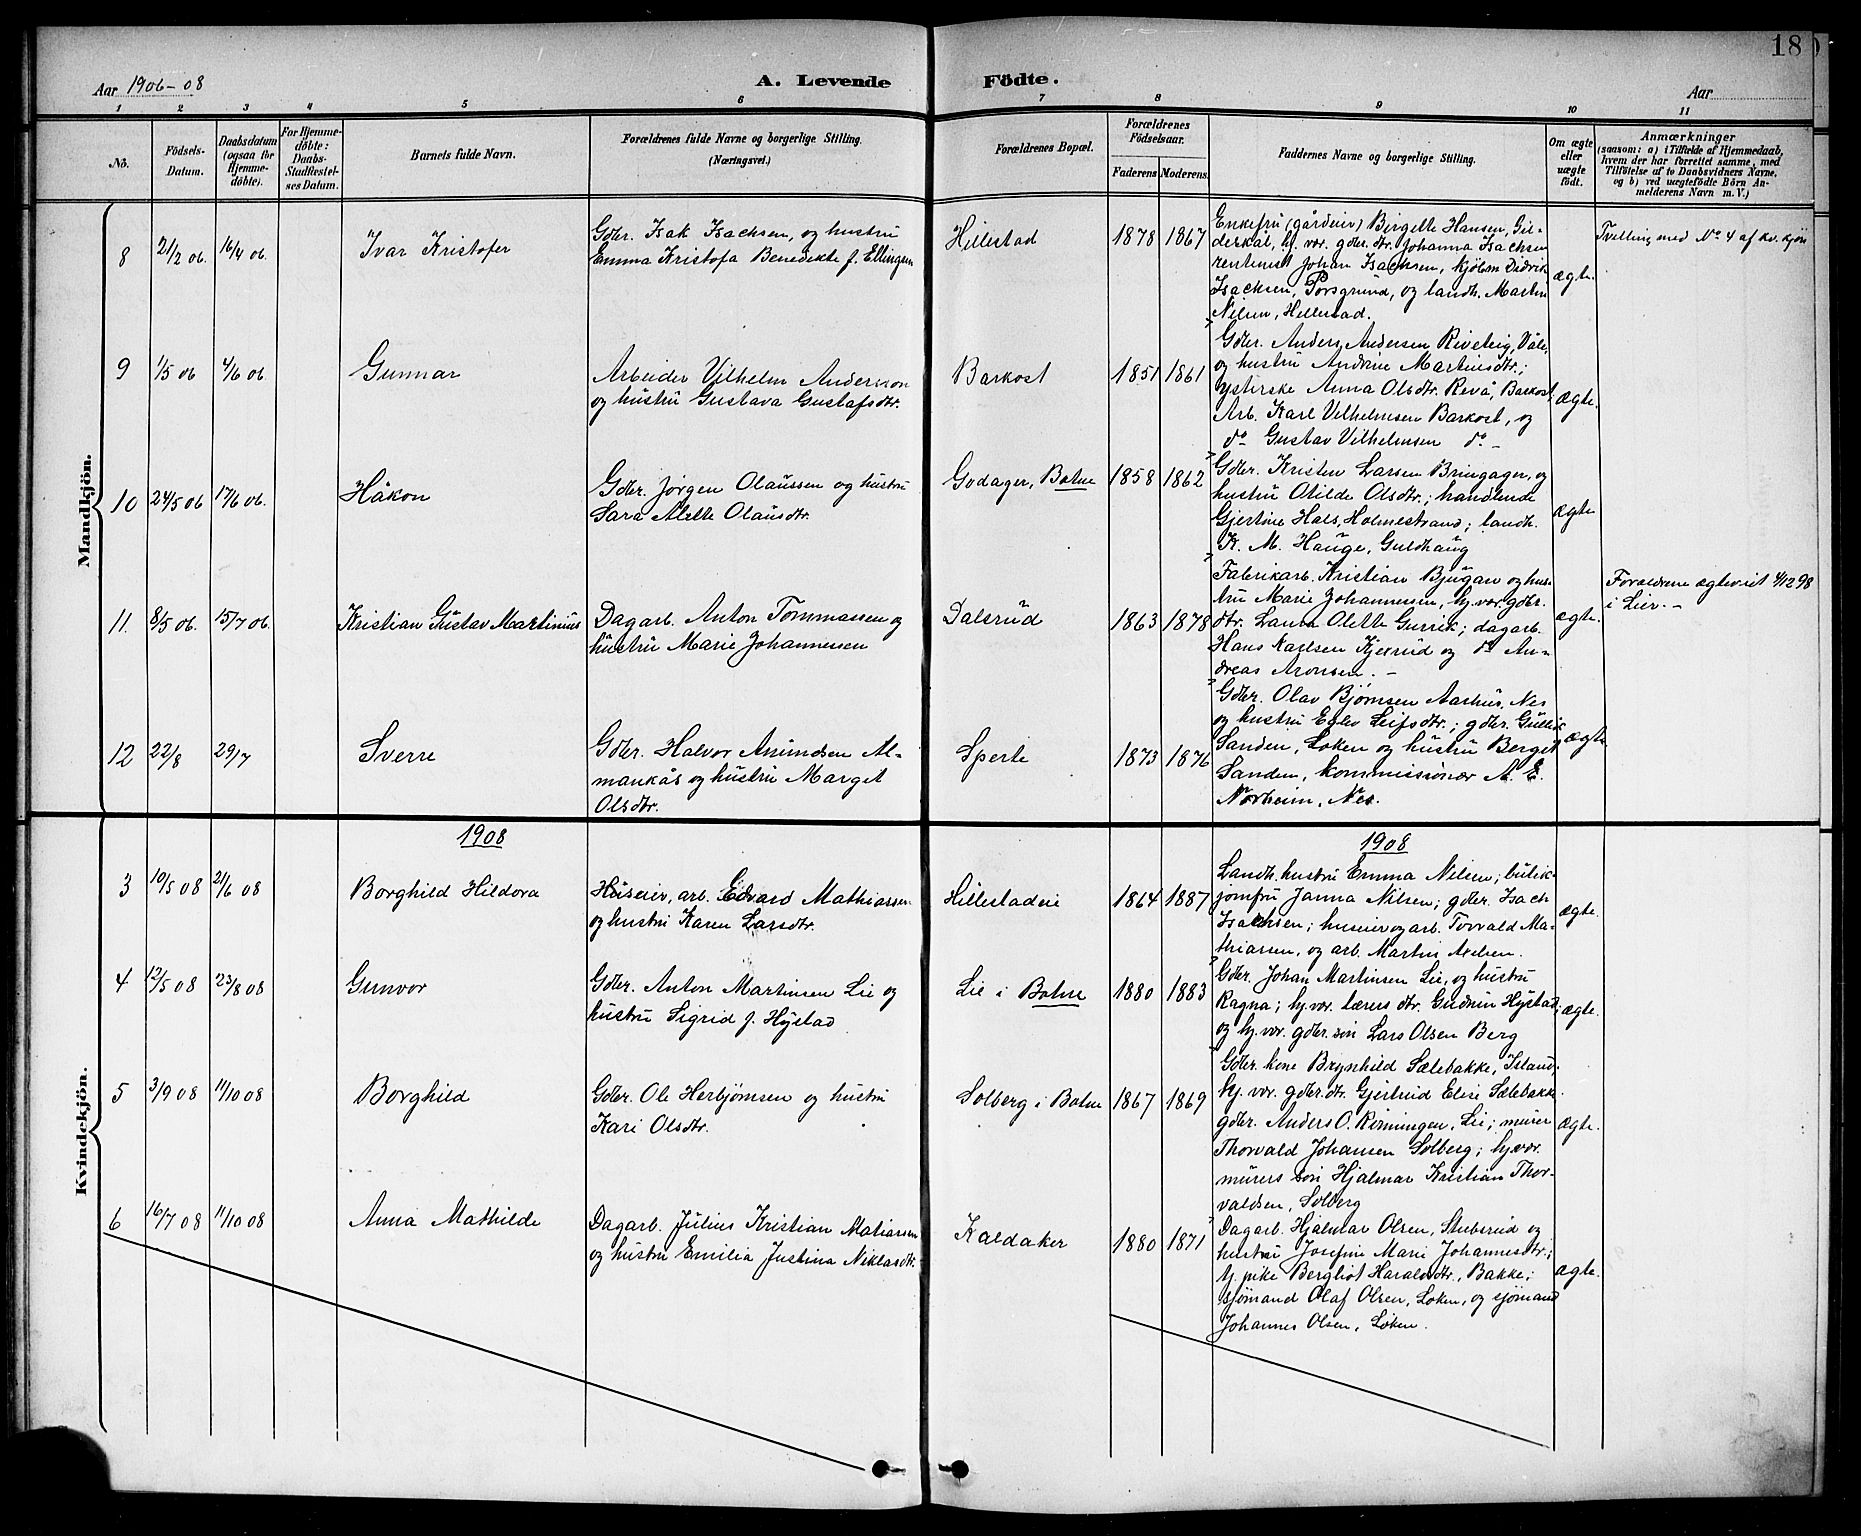 18
Aar 1906-08
A. Levende Födte.
Aar
1 2 3 4 5 6 7 8 9 10 11
No.
Födsels-Datum.
Daabsdatum (ogsaa for Hjemmedöbte).
For Hjemmedöbte: Daabs-Stadfæstelses Datum.
Barnets fulde Navn.
Forældrenes fulde Navne og borgerlige Stilling. (Næringsvei.)
Forældrenes Bopæl.
Forældrenes Födselsaar.
Faderens Moderens.
Faddernes Navne og borgerlige Stilling.
Om ægte eller uægte födt.
Anmærkninger
(saasom: a) i Tilfælde af Hjemmedaab, hvem der har forrettet samme, med Tilföielse af to Daabsvidners Navne, og b) ved uægtefödte Börn Anmelderens Navn m. V.)
Mandkjön.
8 21/2 06. 16/4 06. Ivar Kristofer
Gdbr. Isak Isachsen, og hustru
Emma Kristofa Benedikte f. Ellingsen
Hillestad 1878 1867
Enkefru (gårdeier) Birgitte Hansen, Gil-
derkål, hj. vær. gdbr. dtr. Johanna Isachsen
rentenist Johan Isachsen, kjöbm Didrik
Isachsen, Porsgrund, og landh. Martin
Nilsen, Hillestad.
ægte.
Tvilling med No 4 af kv. kjön
9 1/5 06 4/6 06. Gunnar
Arbeider Vilhelm Anderson
og hustru Gustava Gustafsdtr.
Barkost 1851 1861
Gdbr. Anders Andersen Riveteig, Våle,
og hustru Andrine Martinsdtr.;
ysterske Anna Olsdtr. Revå, Barkost,
Arb. Karl Vilhelmsen Barkost, og
do Gustav Vilhelmsen do -
ægte.
10 24/5 06 17/6 06. Håkon
Gdbr. Jörgen Olaussen og hustru
Sara Alette Olausdtr.
Godager, Botne 1858 1862
Gdbr. Kristen Larsen Bringager, og
hustru Otilde Olsdtr.; handlende
Gjertine Hals, Holmestrand; landh.
K. M. Hauge, Guldhaug
ægte
11. 8/5 06. 15/7 06. Kristian Gustav Martinius
Dagarb. Anton Tommassen og
hustru Marie Johannessen
Dalsrud 1863 1878
Fabrikarb. Kristian Bjugan og hus-
tru Marie Johannesen, hj. vær. gdbr.
dtr. Laura Olette Gurrik; dagarb.
Hans Karlsen Kjexrud og do An-
dreas Aronsen. -
ægte.
Forældrene ægteviet 4/12 98
i Lier. -
12 22/8 29/7 Sverre
Gdbr. Halvor Amundsen Al-
mankås og hustru Marget
Olsdtr.
Sperte 1873 1876
Gdbr. Olav Bjömsen Aarhus, Nes
og hustru Egler Leifsdtr.; gdbr. Gullik
Sanden, Löken og hustru Berget
Sanden, kommissionær A. E.
Norheim, Nes.
ægte
Kvindekjön.
1908 1908
3 10/5 08 21/6 08 Borghild Hildora
Huseier, arb. Edvard Mathiassen
og hustru Karen Larsdtr.
Hillestadeie 1864 1887
Landh. hustru Emma Nilsen; butik-
jomfru Janna Nilsen; gdbr. Isach
Isachsen; huseier og arb. Torvald Ma-
thiasen, og arb. Martin Axelsen.
ægte.
4 12/5 08 23/8 08 Gunvor
Gdbr. Anton Martinsen Lie og
hustru Sigrid f. Hystad
Lie i Botne 1880 1883
Gdbr. Johan Martinsen Lie, og hustru
Ragna; hj. vær. lærers dtr. Gudrun Hystad;
og hj. vær. gdbr. sön Lars Olsen Berg
ægte.
5 3/9 08 11/10 08 Borghild
Gdbr. Ole Herbjömsen og hustru
Kari Olsdtr.
Solberg i Botne 1867 1869
Gdbr. kone Brynhild Sælebakke, Island.
hj. vær. gdbr. dtr. Gjertrud Elise Sælebakk.
gdbr. Anders O. Rönningen, Lie; murer
Thorvald Johansen Solberg; hj. vær.
murers sön Hjalmar Kristian Thor-
valdsen, Solberg
ægte.
6 16/7 08 11/10 08 Anna Mathilde
Dagarb. Julius Kristian Matiassen
og hustru Emilia Justina Niklasdtr.
Kaldaker 1880 1871
Dagarb. Hjalmar Olsen, Stuberud og
hustru Josefine Marie Johannesdtr.;
tj. pike Bergliot Haraldsdtr., Bakke;
sjömand Olaf Olsen, Löken, og sjömand
Johannes Olsen, Löken.
ægte.